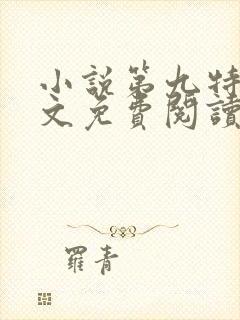 小說第九特
文免費閱讀
羅青